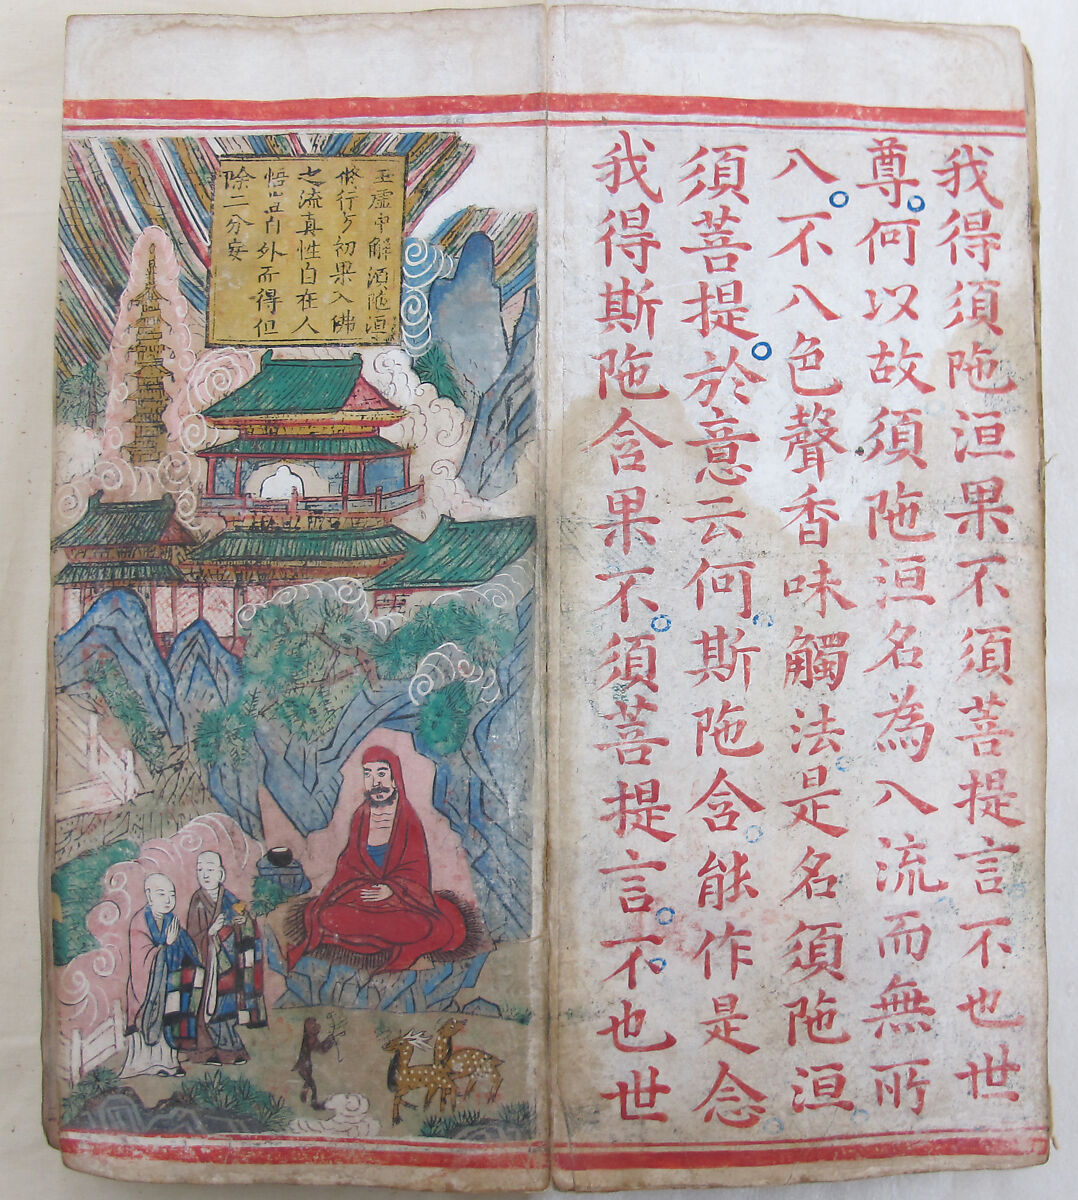 我得須陁洹果不須菩提言不也世
尊何以故須陁洹名為入流而無所
入不入色聲香味觸法是名須陁洹
須菩提於意云何斯陁含能作是念
我得斯陁含果不須菩提言不也世
王虛中解須陁洹
修行初果入佛
之流真性自在人
悟豈自外而得但
除二分妄